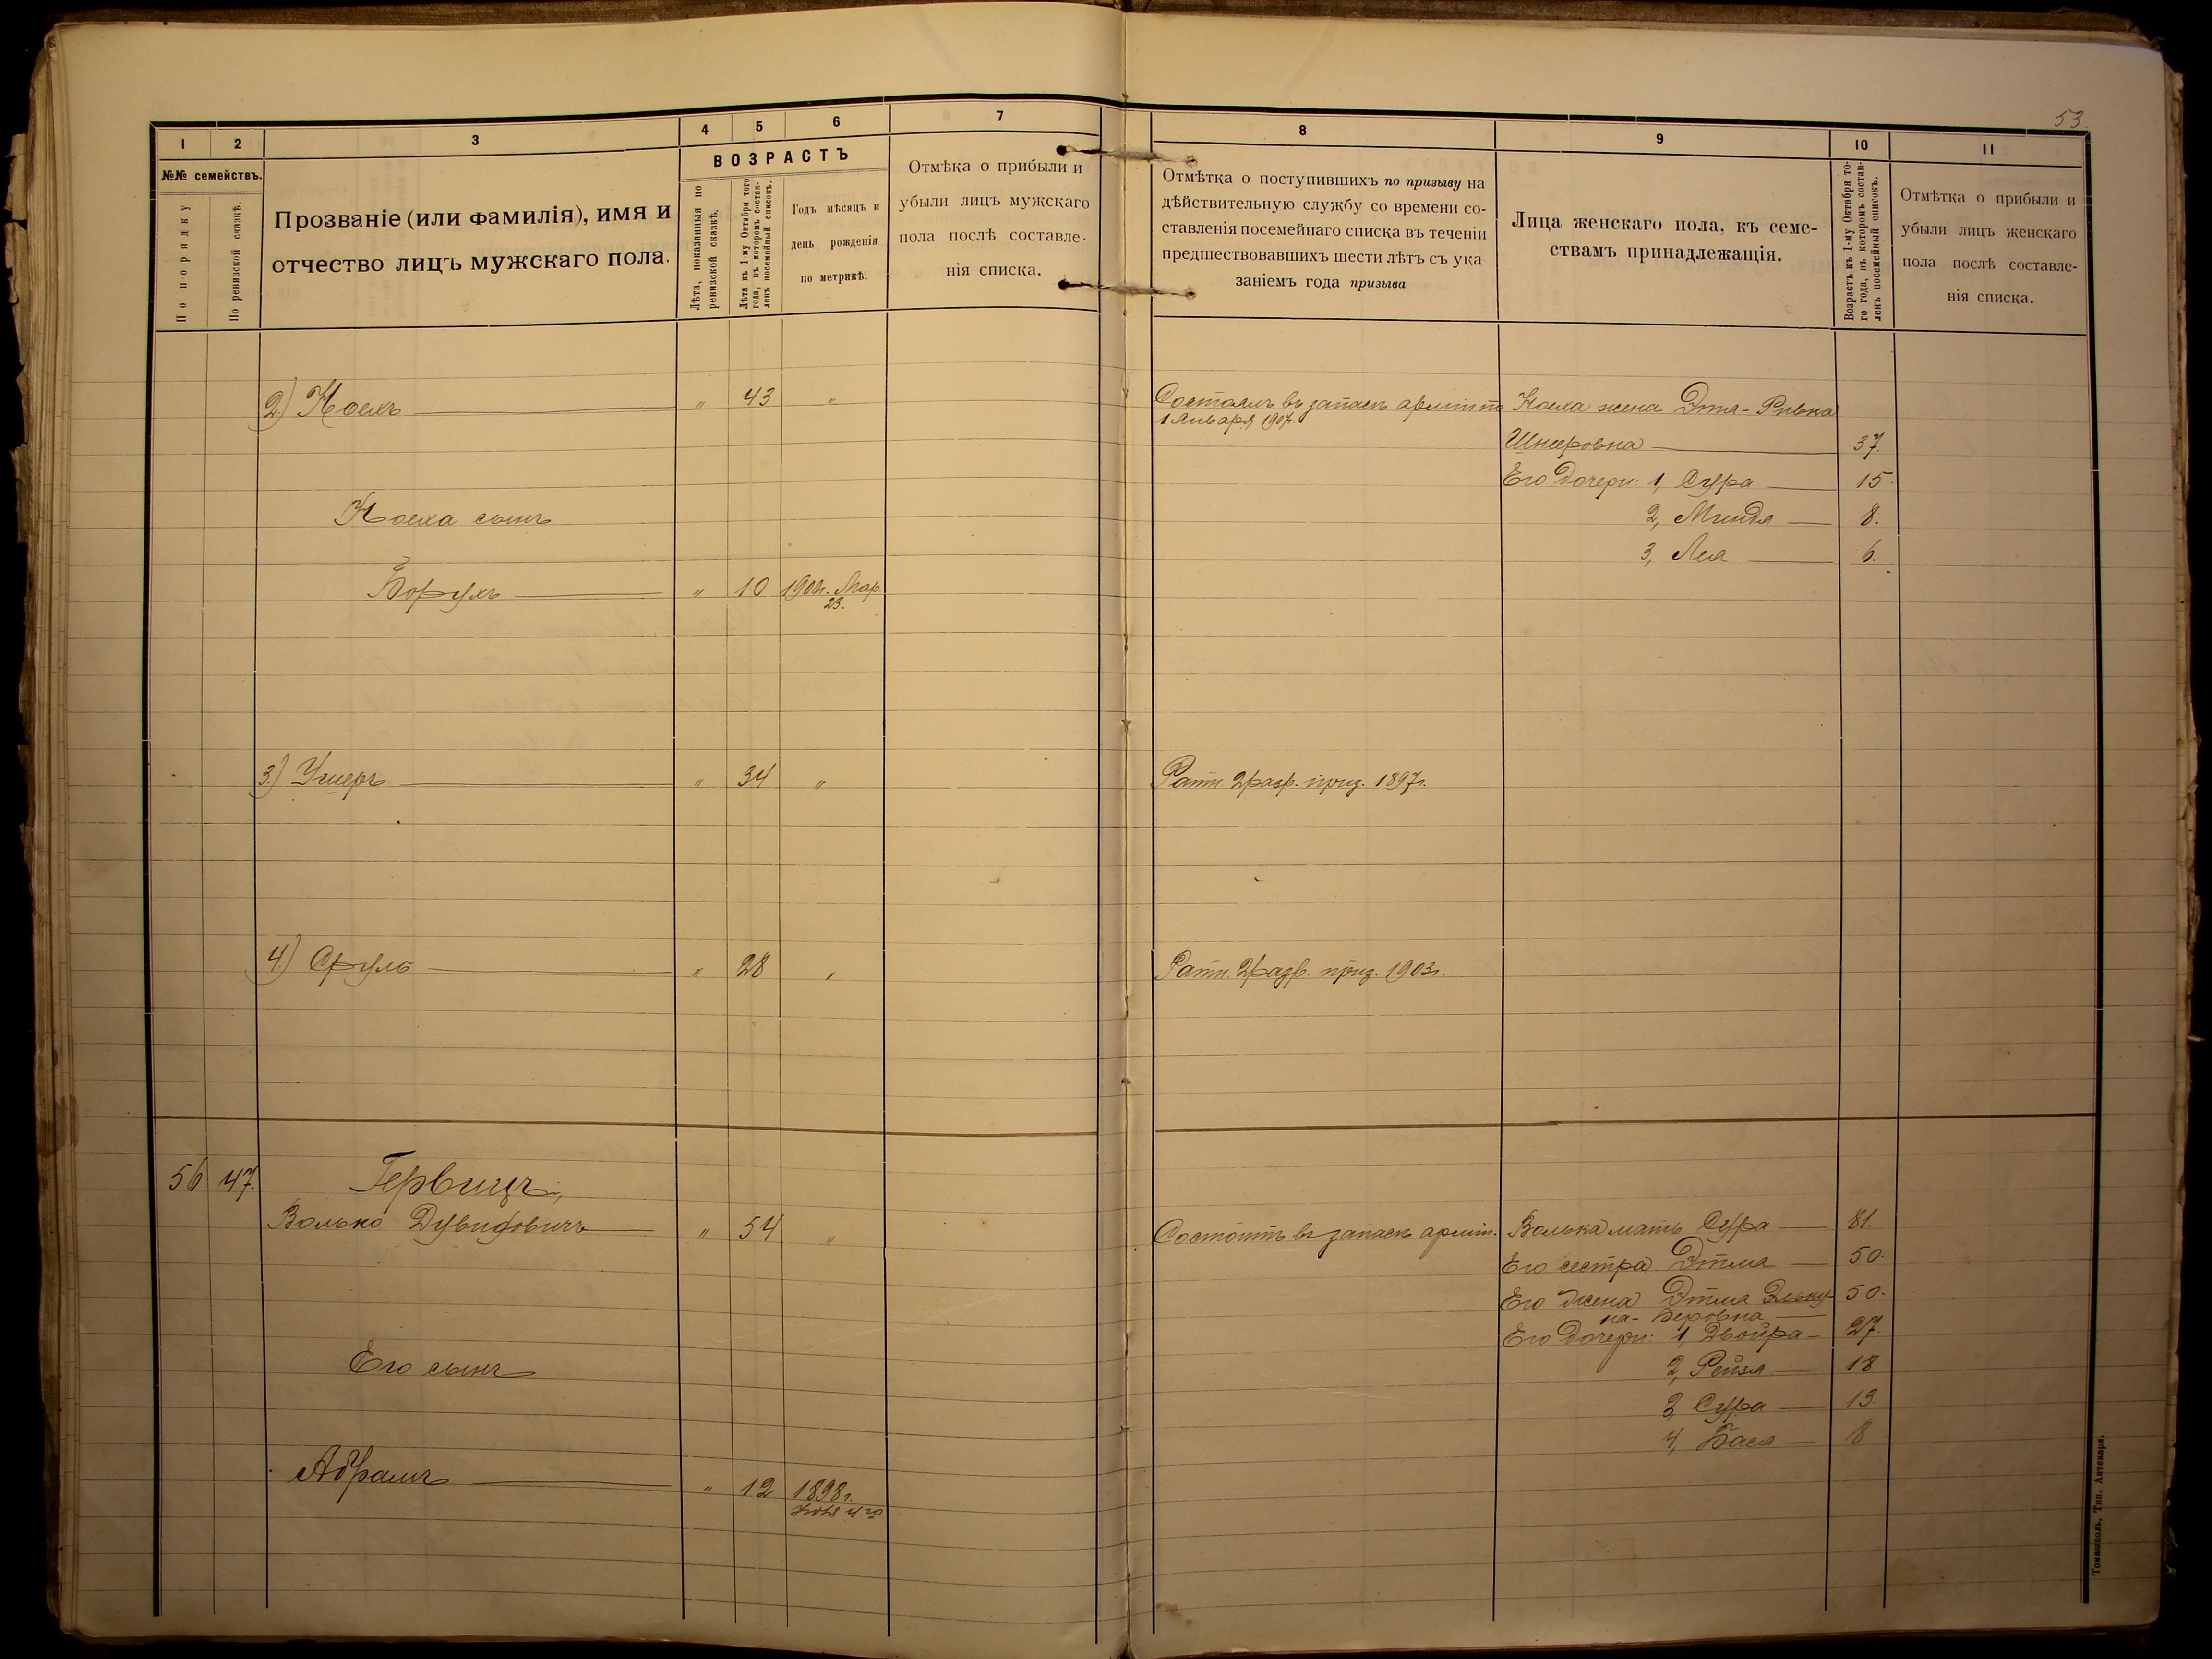 53.
1 2 3 4 5 6 7
№№ семействъ.
По порядку
По ревизской сказкѣ.
Прозваніе (или фамилія), имя и
отчество лицъ мужскаго пола.
ВОЗРАСТЪ
Лѣта, показанныя по
ревизской сказкѣ.
Лѣта къ 1-му Октября того
года, въ которомъ состав-
ленъ посемейный списокъ.
Годъ мѣсяцъ и
день рожденія
по метрикѣ.
Отмѣка о прибыли и
убыли лицъ мужскаго
пола послѣ составле-
нія списка.
2.) Ноехъ " 43 "
Ноеха сынъ
Борухъ " 10 Мар.
23.
3.) Ушеръ " 34 "
4.) Сруль " 28 "
56 47. Гервицъ,
Волько Дувидовичъ " 54 "
Его сынъ
Абрамъ " 12 1898 г.
8 9 10 11
Отмѣтка о поступившихъ по призыву на
дѣйствительную службу со времени со-
ставленія посемейнаго списка въ теченіи
предшествовавшихъ шести лѣтъ съ ука
заніемъ года призыва
Лица женскаго пола, къ семе-
ствамъ принадлежащія.
Возрастъ къ 1-му Октября то-
го года, въ которомъ состав-
ленъ посемейный списокъ.
Отмѣтка о прибыли и
убыли лицъ женскаго
пола послѣ составле-
нія списка.
Состоялъ въ запасѣ арміи по Ноеха жена Этя-Ривка
1 Января 1907.
Шнеровна 37.
Его дочери: 1, Сура 15.
2, Миндя 8.
3, Лея 6.
Ратн. 2 разр. приз. 1897 г.
Ратн. 2 разр. приз. 1903 г.
Состоитъ въ запасѣ арміи. Волька мать Сура 81.
Его сестра Этля 50.
Его жена Этля 50.
на-Беровна
Его дочери: 1, Двойра 27.
2, Рейзя 18
3, Сура 13.
4, Бася 8
Томашполь, Тип. Аптекаря.